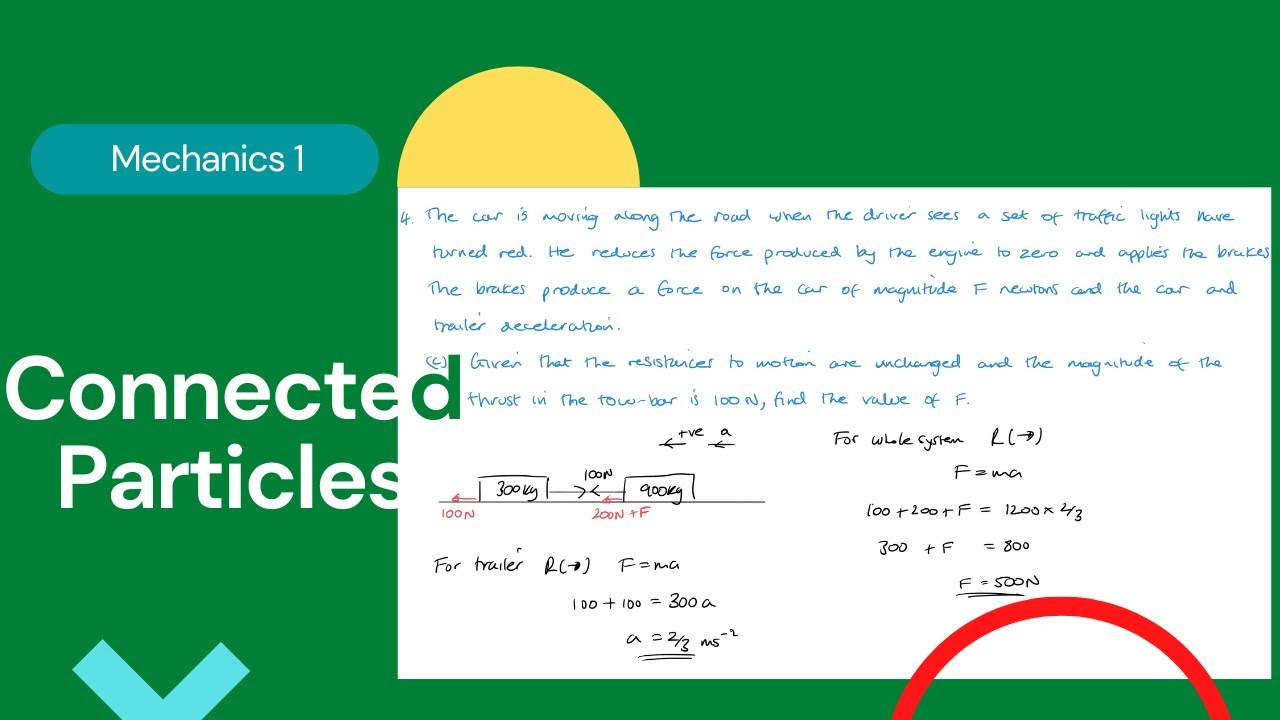 Mechanics 1
Connected
Particles
4. The car is moving along the road when the driver sees a set of traffic lights have
turned red. He reduces the force produced by the engine to zero and applies the brakes
The brakes produce a force on the car of magnitude F newtons and the car and
trailer deceleration.
(c) Given that the resistances to motion are unchanged and the magnitude of the
thrust in the tow-bar is 100N, find the value of F.
+ve a
100N
300kg 900kg
100N 200N + F
For trailer R(→) F = ma
100 + 100 = 300a
a = 2/3 ms⁻²
For whole system R(→)
F = ma
100 + 200 + F = 1200 × 2/3
300 + F = 800
F = 500N